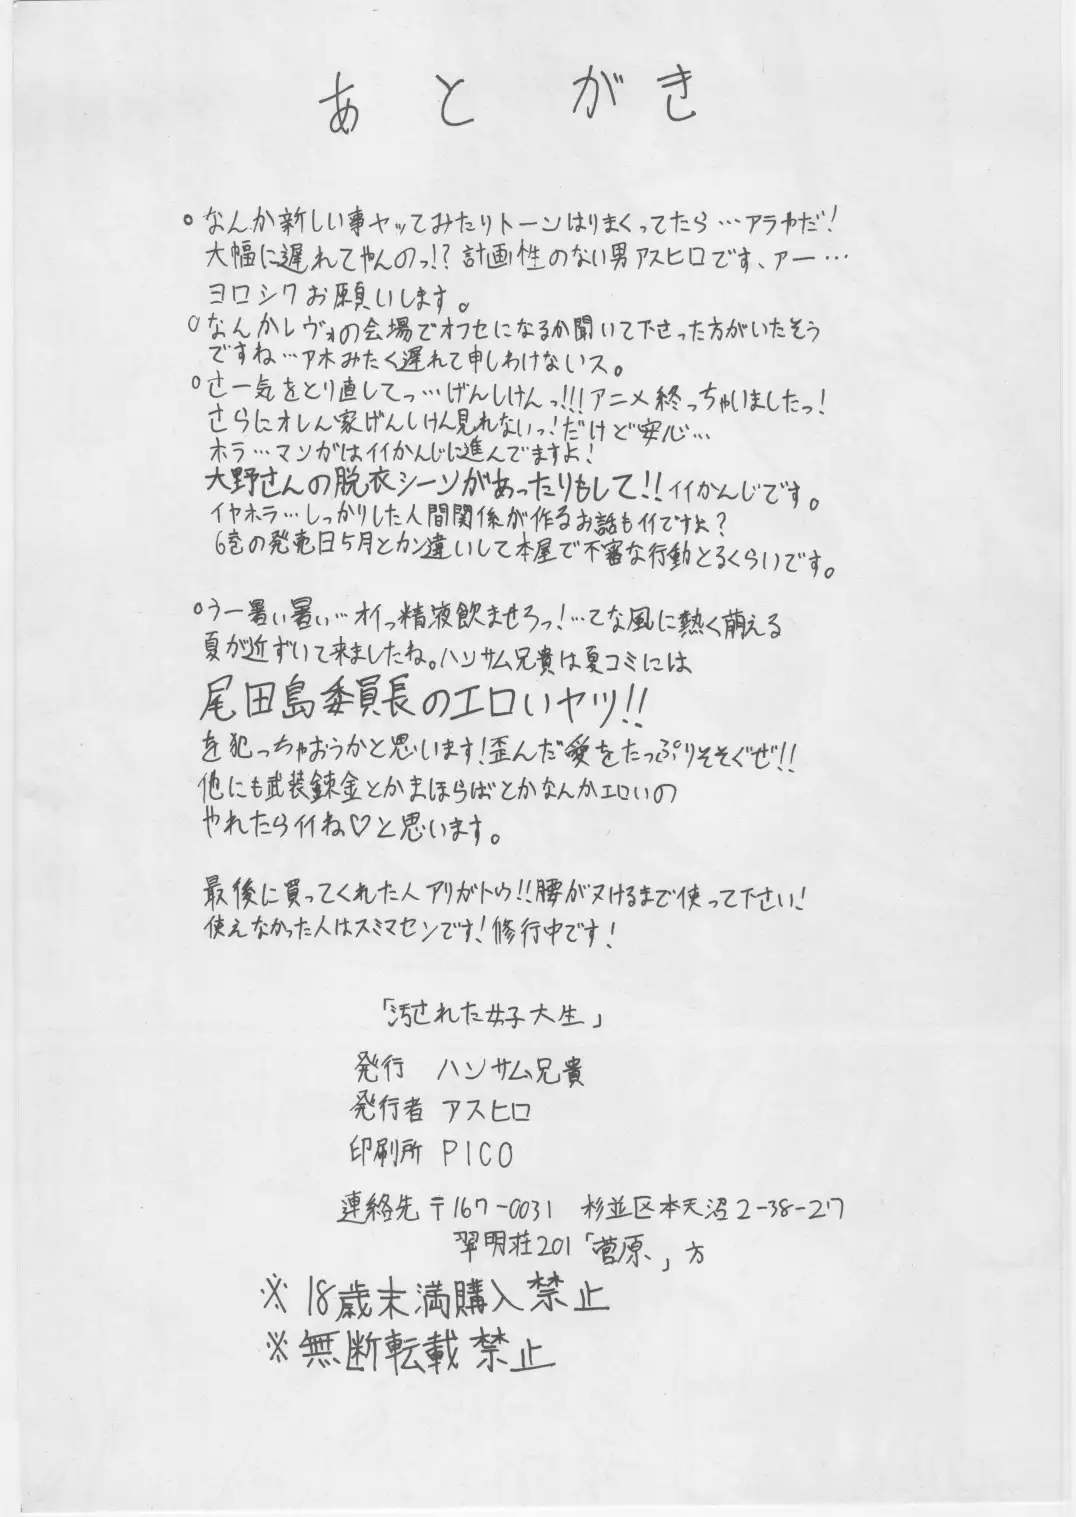 あとがき
○なんか新しい事ヤッてみたりトーンはりまくってたら…アラやだ!
大幅に遅れてやんのっ!?計画性のない男アスヒロです、アー…
ヨロシクお願いします。
○なんかレヴォの会場でオフセになるか聞いて下さった方がいたそう
ですね…アホみたく遅れて申しわけないス。
○さー気をとり直してっ…げんしけんっ!!!アニメ終っちゃいましたっ!
さらにオレん家げんしけん見れないっ!だけど安心…
ホラ…マンガはイイかんじに進んでますよ!
大野さんの脱衣シーンがあったりもして!!イイかんじです。
イヤホラ…しっかりした人間関係が作るお話もイイですよ?
6巻の発売日5月とカン違いして本屋で不審な行動とるくらいです。
○うー暑い暑い…オイっ精液飲ませろっ!…てな風に熱く萌える
夏が近ずいて来ましたね。ハンサム兄貴は夏コミには
尾田島委員長のエロいヤツ!!
を犯っちゃおうかと思います!歪んだ愛をたっぷりそそぐぜ!!
他にも武装錬金とかまほらばとかなんかエロいの
やれたらイイね♡と思います。
最後に買ってくれた人アリガトウ!!腰がヌけるまで使って下さい!
使えなかった人はスミマセンです!修行中です!
「汚された女子大生」
発行 ハンサム兄貴
発行者 アスヒロ
印刷所 PICO
連絡先 〒167-0031 杉並区本天沼2-38-27
翠明荘201「菅原、」方
※18歳末満購入禁止
※無断転載禁止